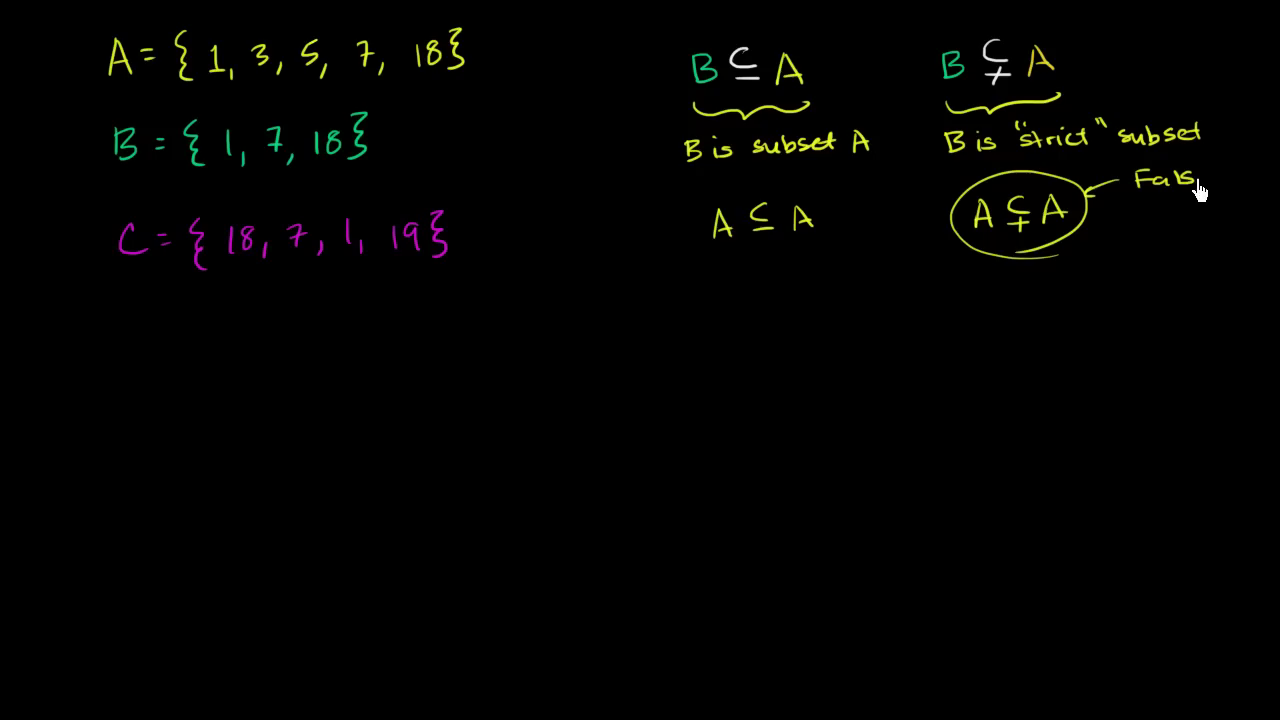 A = { 1, 3, 5, 7, 18}
B = { 1, 7, 18}
C = { 18, 7, 1, 19}
B ⊆ A
B is subset A
A ⊆ A
B ⊊ A
B is "strict" subset
Fals
A ⊊ A